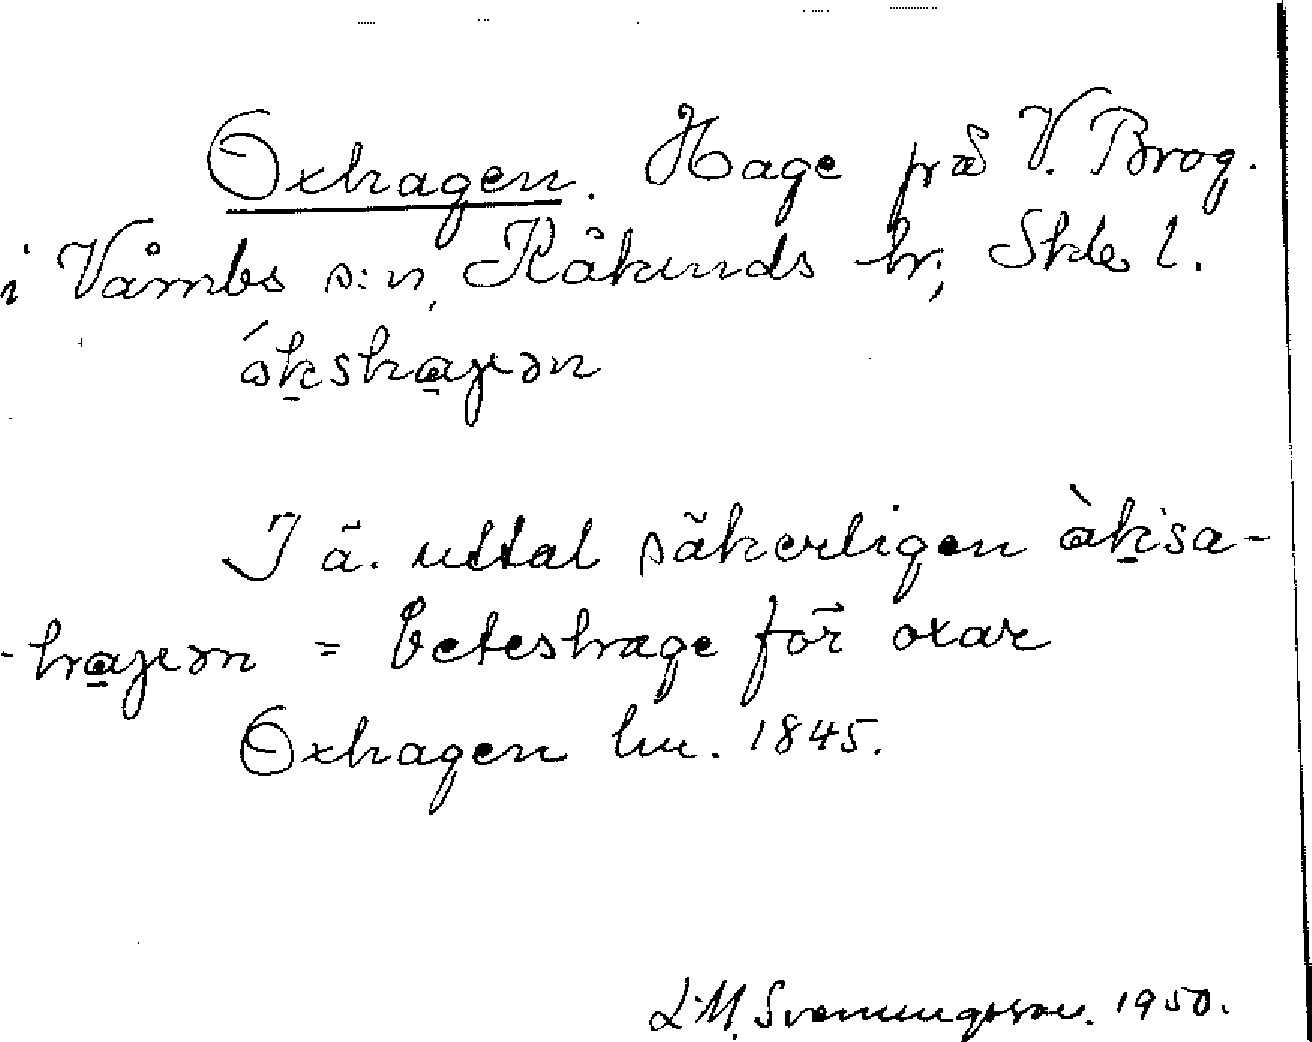 Oxhagen. Hage på V. Brog.
i Våmbs s:n, Kåkinds hr; Skbs l.
ókshaγən
I ä. uttal säkerligen òksa-
-haγən = beteshage för oxar
Oxhagen lm. 1845.
L.M. Svenningsson. 1950.